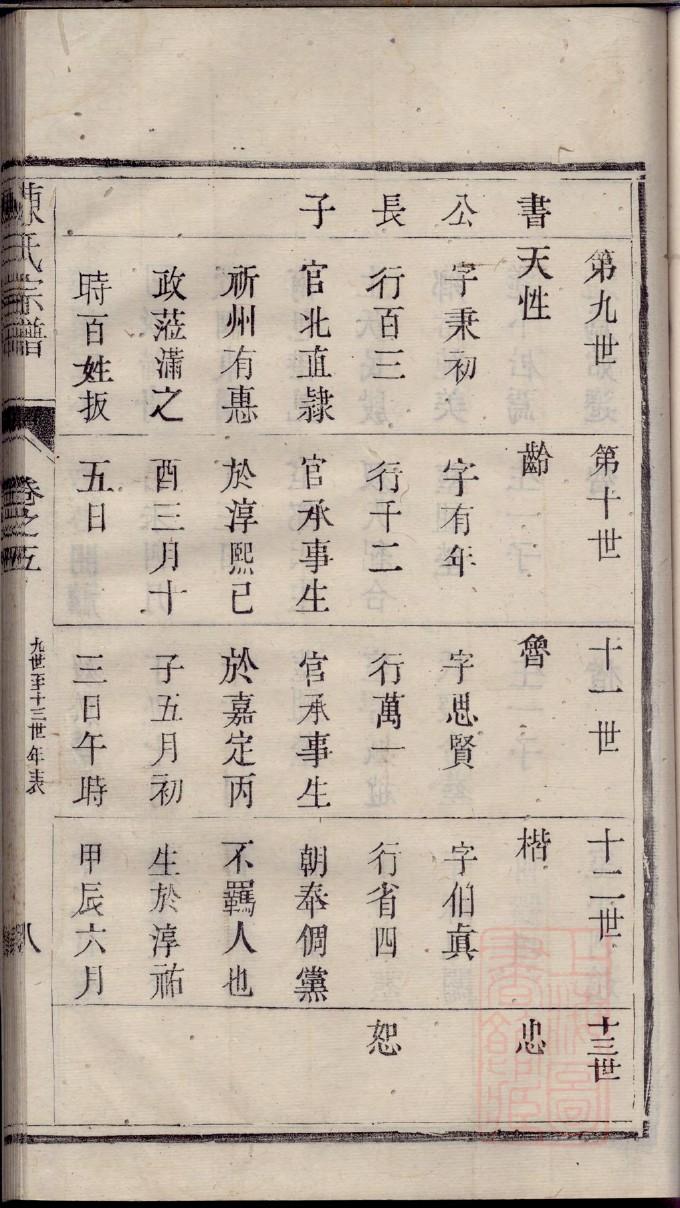 第九世
書公長子
天性
字秉初
行百三
官北直隸
祈州有惠
政蒞瀟之
時百姓扳
第十世
齡
字有年
行千二
官承事生
於淳熙己
酉三月十
五日
十一世
魯
字思賢
行萬一
官承事生
於嘉定丙
子五月初
三日午時
十二世
楷
字伯真
行省四
朝奉倜黨
不羈人也
生於淳祐
甲辰六月
十三世
忠
恕
陳氏宗譜
卷之五
九世至十三世年表
八